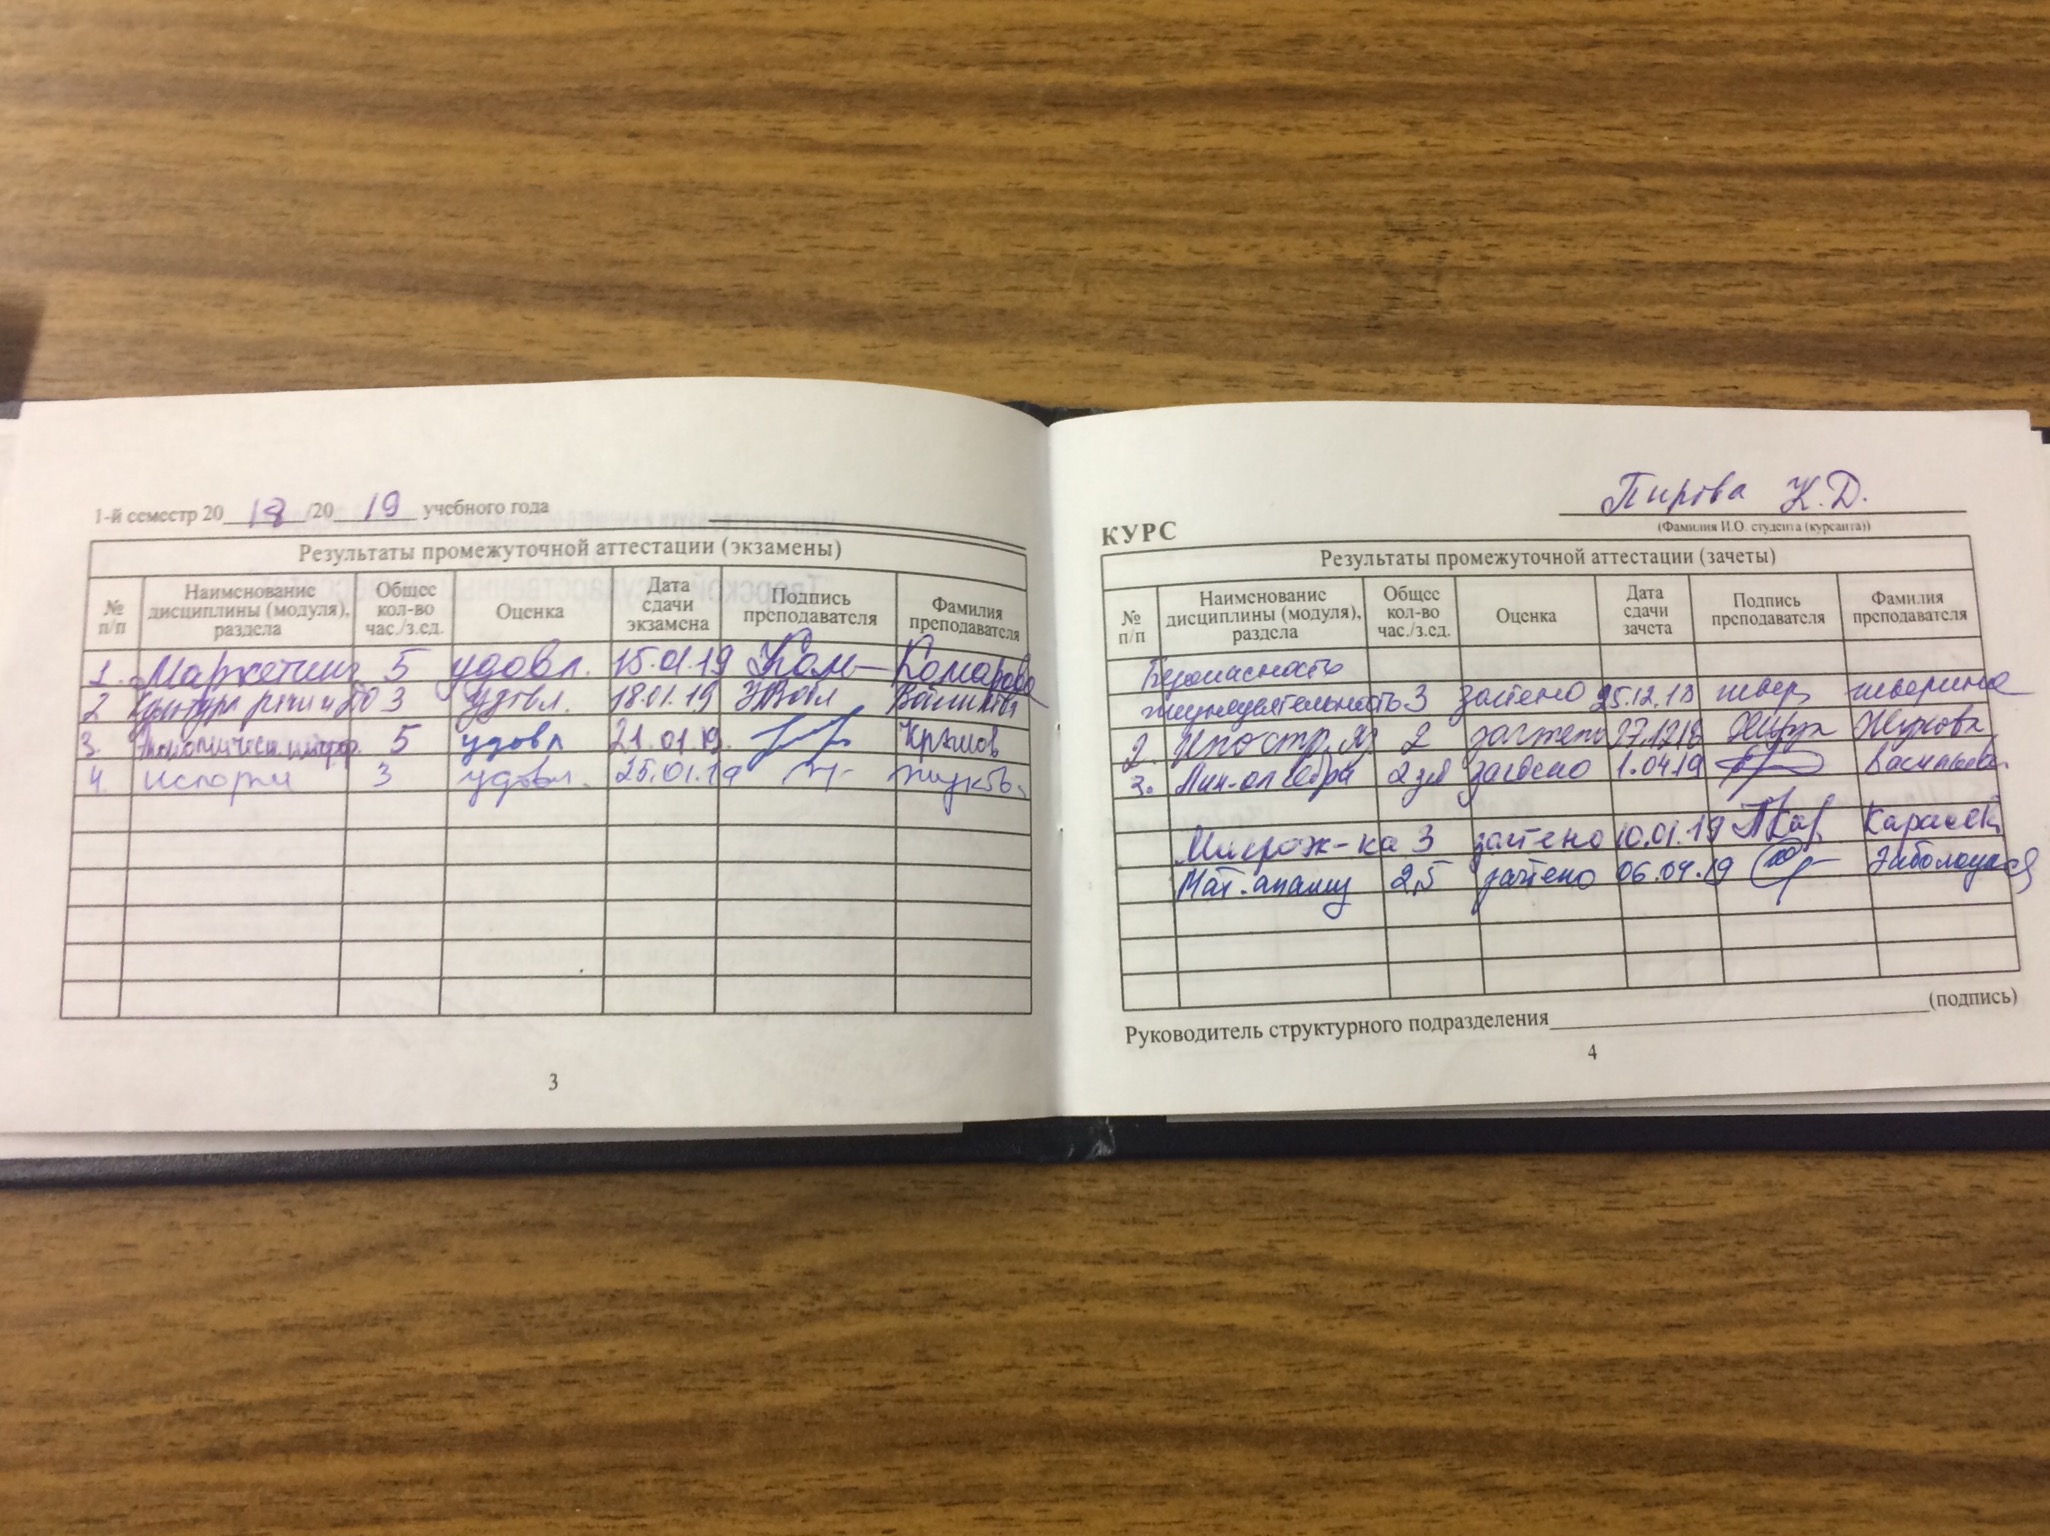 1-й семестр 20 18 /20 19 учебного года
Результаты промежуточной аттестации (экзамены)
№ п/п Наименование дисциплины (модуля), раздела Общее кол-во час./з.ед. Оценка Дата сдачи экзамена Подпись преподавателя Фамилия преподавателя
1. Маркетинг 5 удовл. 15.01.19 Ком Комарова
2 Культура речи и ДО 3 удовл. 18.01.19
3. 5 удовл 21.01.19.
4. история 3 удовл. 25.01.19
3
Пирова К.Д.
КУРС
(Фамилия И.О. студента (курсанта))
Результаты промежуточной аттестации (зачеты)
№ п/п Наименование дисциплины (модуля), раздела Общее кол-во час./з.ед. Оценка Дата сдачи зачета Подпись преподавателя Фамилия преподавателя
Безопасность
жизнедеятельность 3 зачтено 25.12.18 швер шверина
2. Иностр. яз 2 зачтено 27.12.18 Жукова
3. Лин. алгебра 2 зачтено 1.04.19 Васильева
3 зачтено 10.01.19
Мат. анализ 2,5 зачтено 06.04.19
Руководитель структурного подразделения (подпись)
4